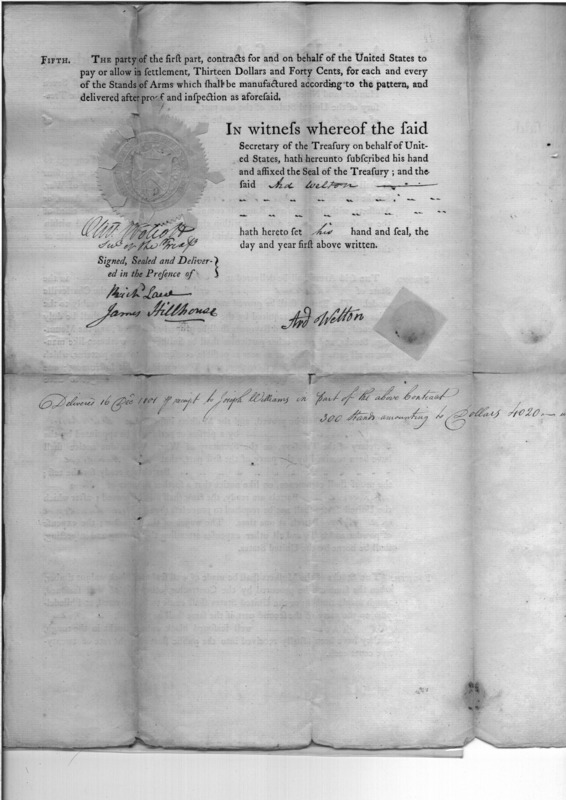 FIFTH. THE party of the firſt part, contracts for and on behalf of the United States to
pay or allow in ſettlement, Thirteen Dollars and Forty Cents, for each and every
of the Stands of Arms which ſhall be manufactured according to the pattern, and
delivered after proof and inſpection as aforeſaid.
IN witneſs whereof the ſaid
Secretary of the Treaſury on behalf of Unit-
ed States, hath hereunto ſubſcribed his hand
and affixed the Seal of the Treaſury; and the
ſaid Ard Welton
hath hereto ſet his hand and ſeal, the
day and year firſt above written.
Olivr Wolcott
Secy of the Treasy
Signed, Sealed and Deliver-
ed in the Preſence of
Richd Law
James Hillhouse
Ard Welton
Delivered 16 Decr 1801 to Joseph Williams in part of the above Contract
300 Stands amounting to Dollars 4020